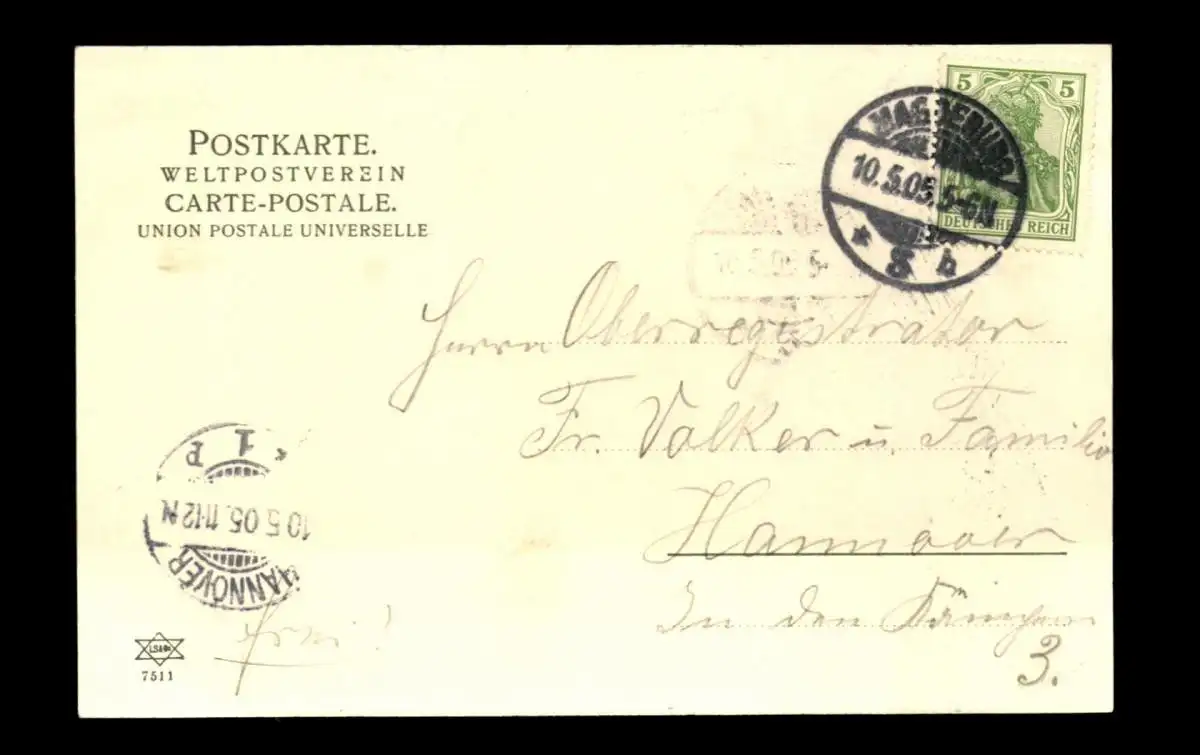 POSTKARTE.
WELTPOSTVEREIN
CARTE-POSTALE.
UNION POSTALE UNIVERSELLE
5 5
DEUTSCHES REICH
MAGDEBURG
10.5.05.5-6N
* 5 b
10.5.05.5-
Herrn Oberregistrator
Fr. Volker u. Familie
Hannover
In den
3.
HANNOVER
10.5.05.11-12N
* 1 P
frei!
7511